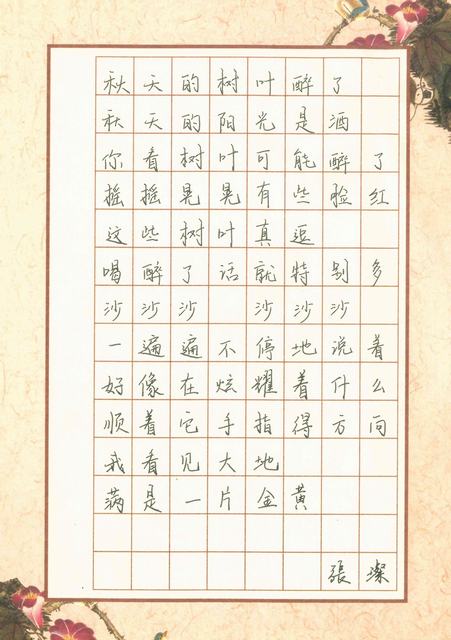 秋天的树叶醉了
秋天的阳光是酒
你看树叶可能醉了
摇摇晃晃有些脸红
这些树叶真逗
喝醉了话就特别多
沙沙沙 沙沙沙
一遍遍不停地说着
好像在炫耀着什么
顺着它手指得方向
我看见大地
满是一片金黄
張璨